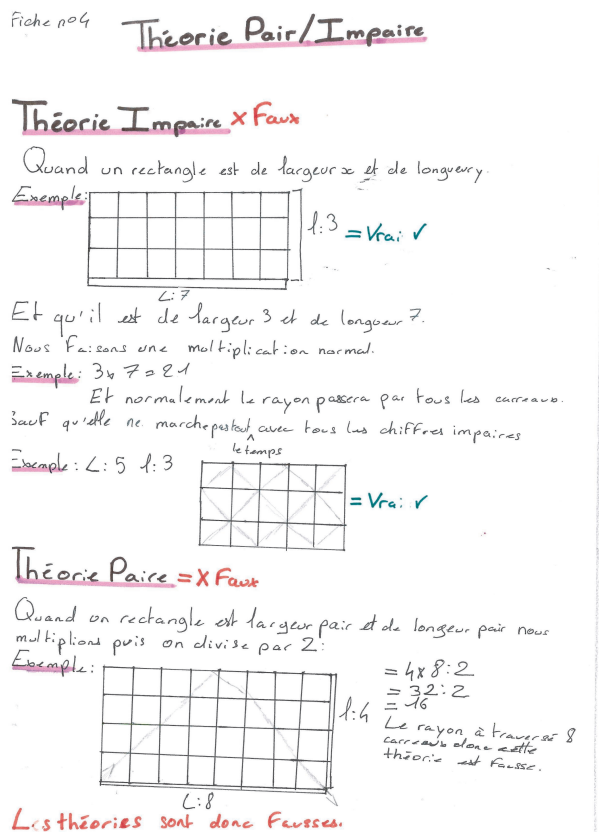 Fiche n°4
Théorie Pair/Impaire
Théorie Impaire x Faux
Quand un rectangle est de largeur x et de longueur y.
Exemple:
l:3 = Vrai ✓
L:7
Et qu'il est de largeur 3 et de longueur 7.
Nous faisons une multiplication normal.
Exemple: 3x7=21
Et normalement le rayon passera par tous les carreaux.
Sauf qu'elle ne marche pas tout avec tous les chiffres impaires
le temps
Exemple: L:5 l:3
= Vrai ✓
Théorie Paire = x Faux
Quand un rectangle est largeur pair et de longeur pair nous
multiplions puis on divise par 2:
Exemple:
= 4x8:2
= 32:2
= 16
l:4
Le rayon à traversé 8
carreaux donc cette
théorie est fausse.
L:8
Les théories sont donc Fausses.